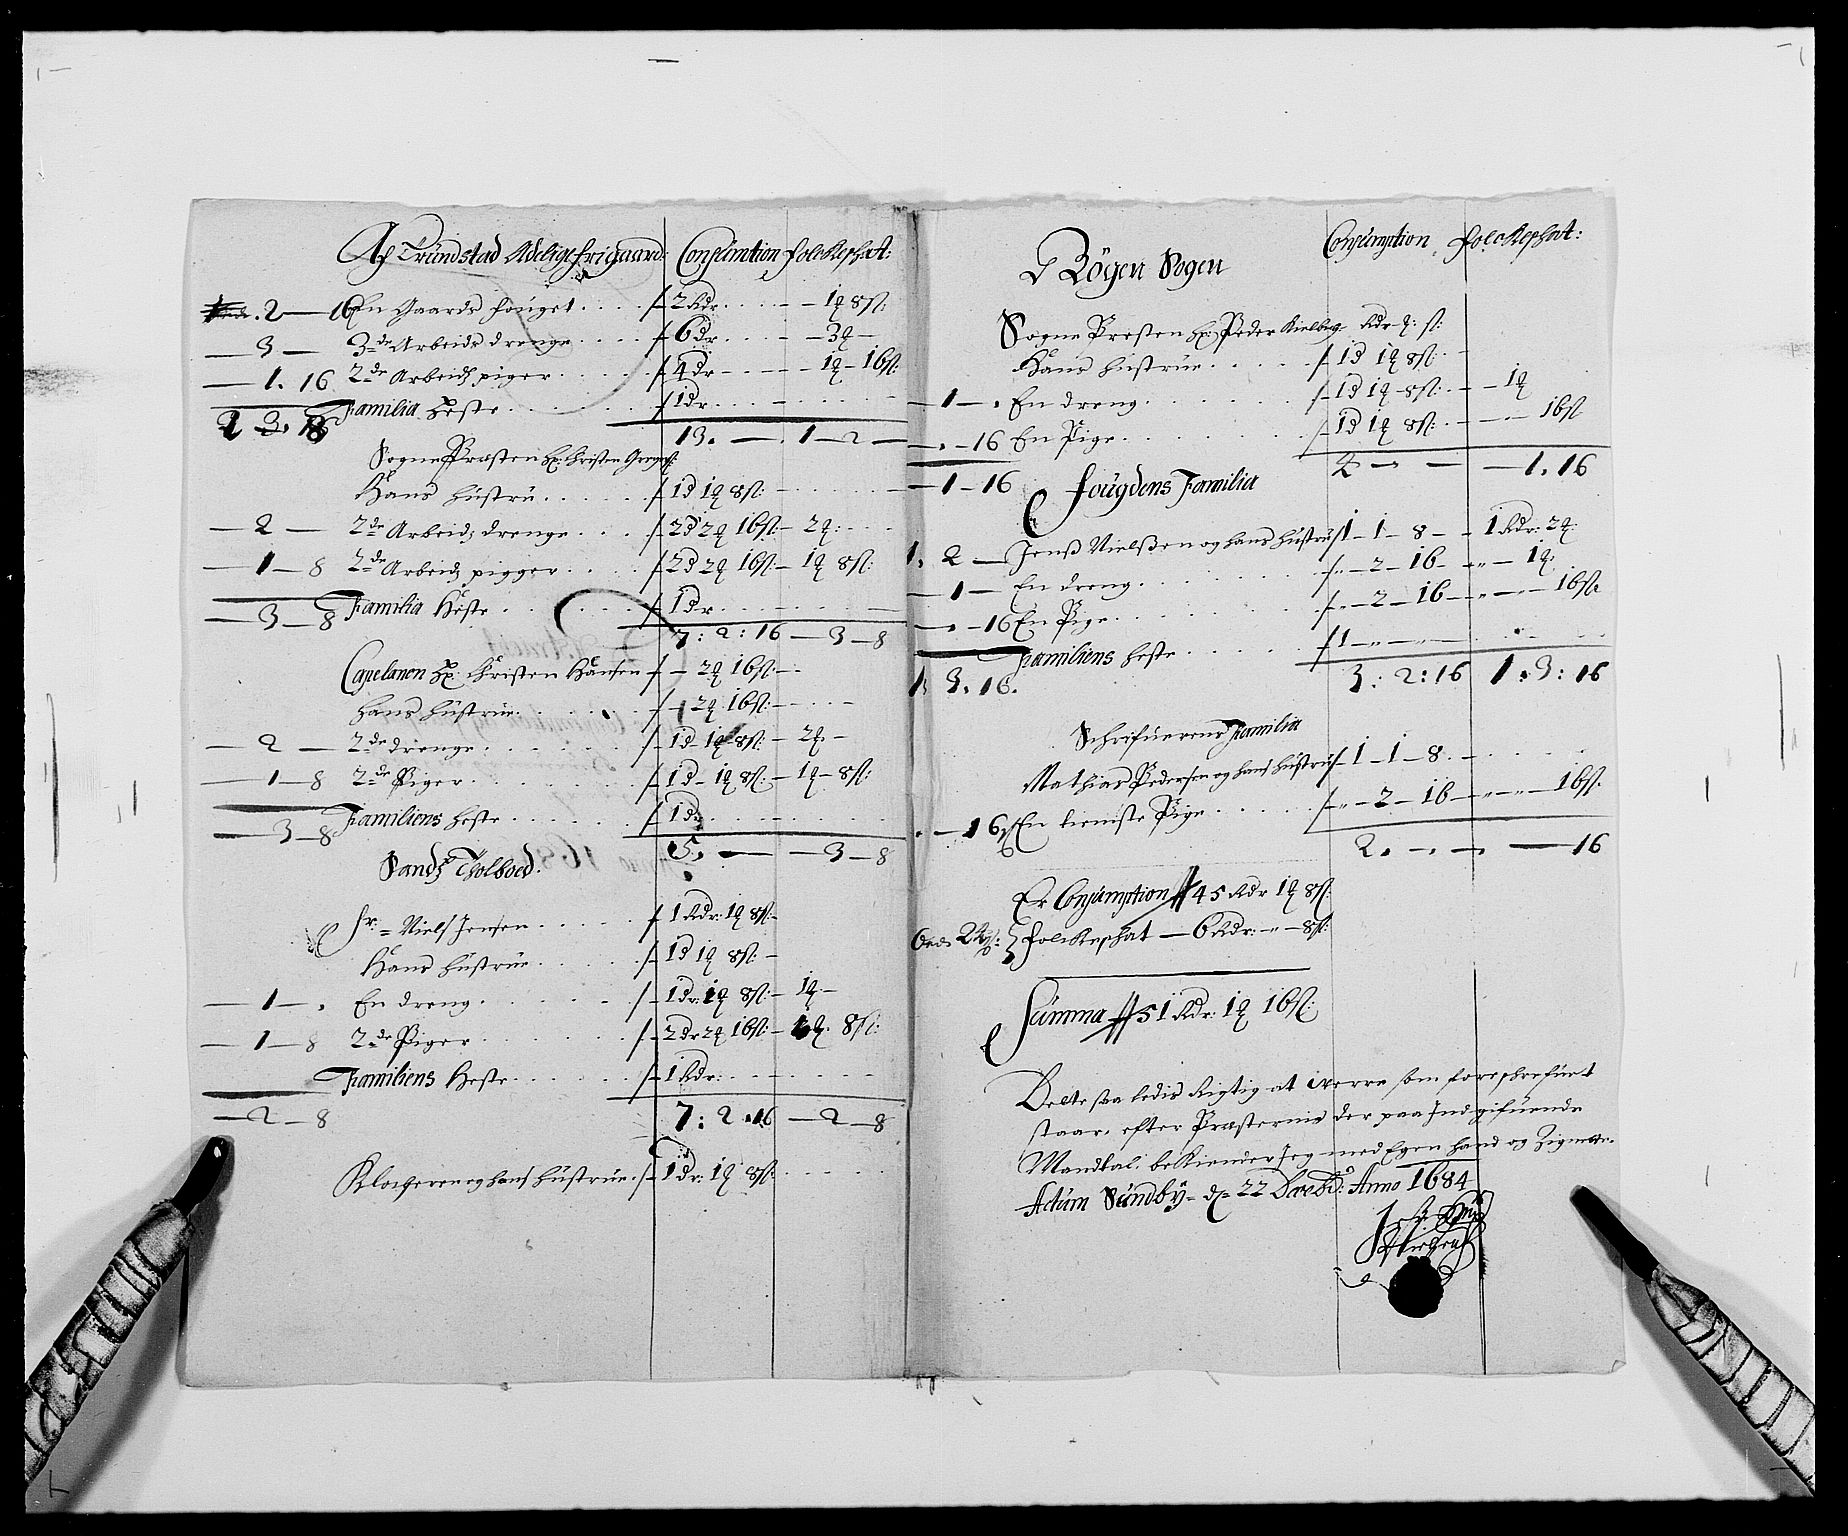 Af Trundstad Adelige frigaard: Consumtion folcKeschat:
2 — 16 En Gaards fouget . . . . 2 Rdr . . . . — 1 q 8 ss:
— 3 — 3de Arbeids drenge . . . . 6 dr . . . . — 3 q —
— 1. 16 2de Arbeids piger . . . . . 4 dr — — — 1 q — 16 ss:
Familia Heste . . . . . . 1 dr . . . .
13. — . 1 — 2 —
Sogne Præsten hr: Christen
Hans hustru . . . . . 1 d 1 q 8 ss: — . . . .
— 2 — 2de Arbeids drenge . . . 2 d 2 q 16 ss: — 2 q: . . . .
— 1 — 8 2de Arbeids pigger . . . . 2 d 2 q 16 ss: — 1 q 8 ss:
— 3 — 8 Familia Heste . . . . . . 1 dr . . . .
7 : 2 : 16 — 3 — 8
Capelanen hr: Christen Hansen — 2 q 16 ss: — . .
hans hustrue . . . . — 2 q 16 ss: — . . .
— 2 — 2de drenge . . . . . . 1 d — 1 q — 8 ss: — 2 q. —
— 1 — 8 2de Piger . . . . . . 1 d — 1 q 8 ss: — 1 q — 8 ss:
— 3 — 8 Familiens heste . . . . . . 1 dr . . . .
5. — — 3 — 8
Sands Tholboed.
Sr: = Niels Jensen . . . . . 1 Rdr: 1 q 8 ss: —
Hans hustrue . . . . . 1 d 1 q 8 ss: —
— 1 — . En dreng . . . . . . 1 dr: 1 q 8 ss: — 1 q —
— 1 — 8 2de Piger . . . . . . 2 dr 2 q 16 ss: — 1 q. 8 ss:
Familiens Heste . . . . . . 1 Rdr: . . . .
— 2 — 8 7 : 2 . 16 — 2 — 8
Klocheren og hans hustrue . 1 dr: 1 q 8 ss: . . . .
Consumption folcKeschat:
Røgen Sogen
Sogne Presten hr: Peder Rdr q: ss:
Hans hustrue . . . . . 1 d 1 q 8 ss: —
— 1 — . En dreng . . . . . . 1 d 1 q — 8 ss: — — 1 q
— . — 16 En Pige . . . . . . 1 d 1 q 8 ss: — — 16 ss
— 1 — 16 4 — — — 1. 16
fougdens Familia
1. 2 — Jenss Nielssen og hans hustru 1 — 1 — 8 — 1 Rdr: 2 q:
— 1 — En dreng . . . . . . — 2 — 16 — — 1 q:
— . — 16 En Pige . . . . . . — 2 — 16 — — 16 ss
Familiens heste . . . . . . 1 — — —
1. 3. 16. 3 : 2 : 16 1 . 3 : 16
Schrifuerens Familia
Mathias Pedersen og hans hustru 1 — 1 — 8 . — . . . .
. — 16 En tieniste Pige . . . . . — 2 — 16 — — 16 ss.
2. — . — — 16
Er Consumption 45 Rdr 1 q 8 ss:
folckeschat — 6 Rdr: — 8 ss:
Summa 51 Rdr: 1 q 16 ss:
Dette saa ledis Rigtig at werre som foreschrefuet
staar. efter Præsternis der paa Indgifuende
Mandtal. beKiender Jeg med Egen hand og Zignete.
Actum Sundby — d: 22 Decebr: Anno 1684